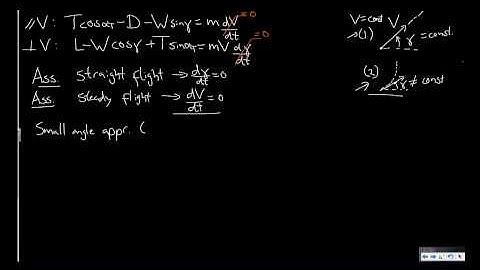 ∥V: Tcosα_T - D - Wsinγ = m dV/dt = 0
⊥V: L - Wcosγ + Tsinα_T = mV dγ/dt = 0
Ass. Straight flight → dγ/dt = 0
Ass. Steady flight → dV/dt = 0
Small angle appr. (
V = const V
→ (1) γ = const.
(2)
γ ≠ const